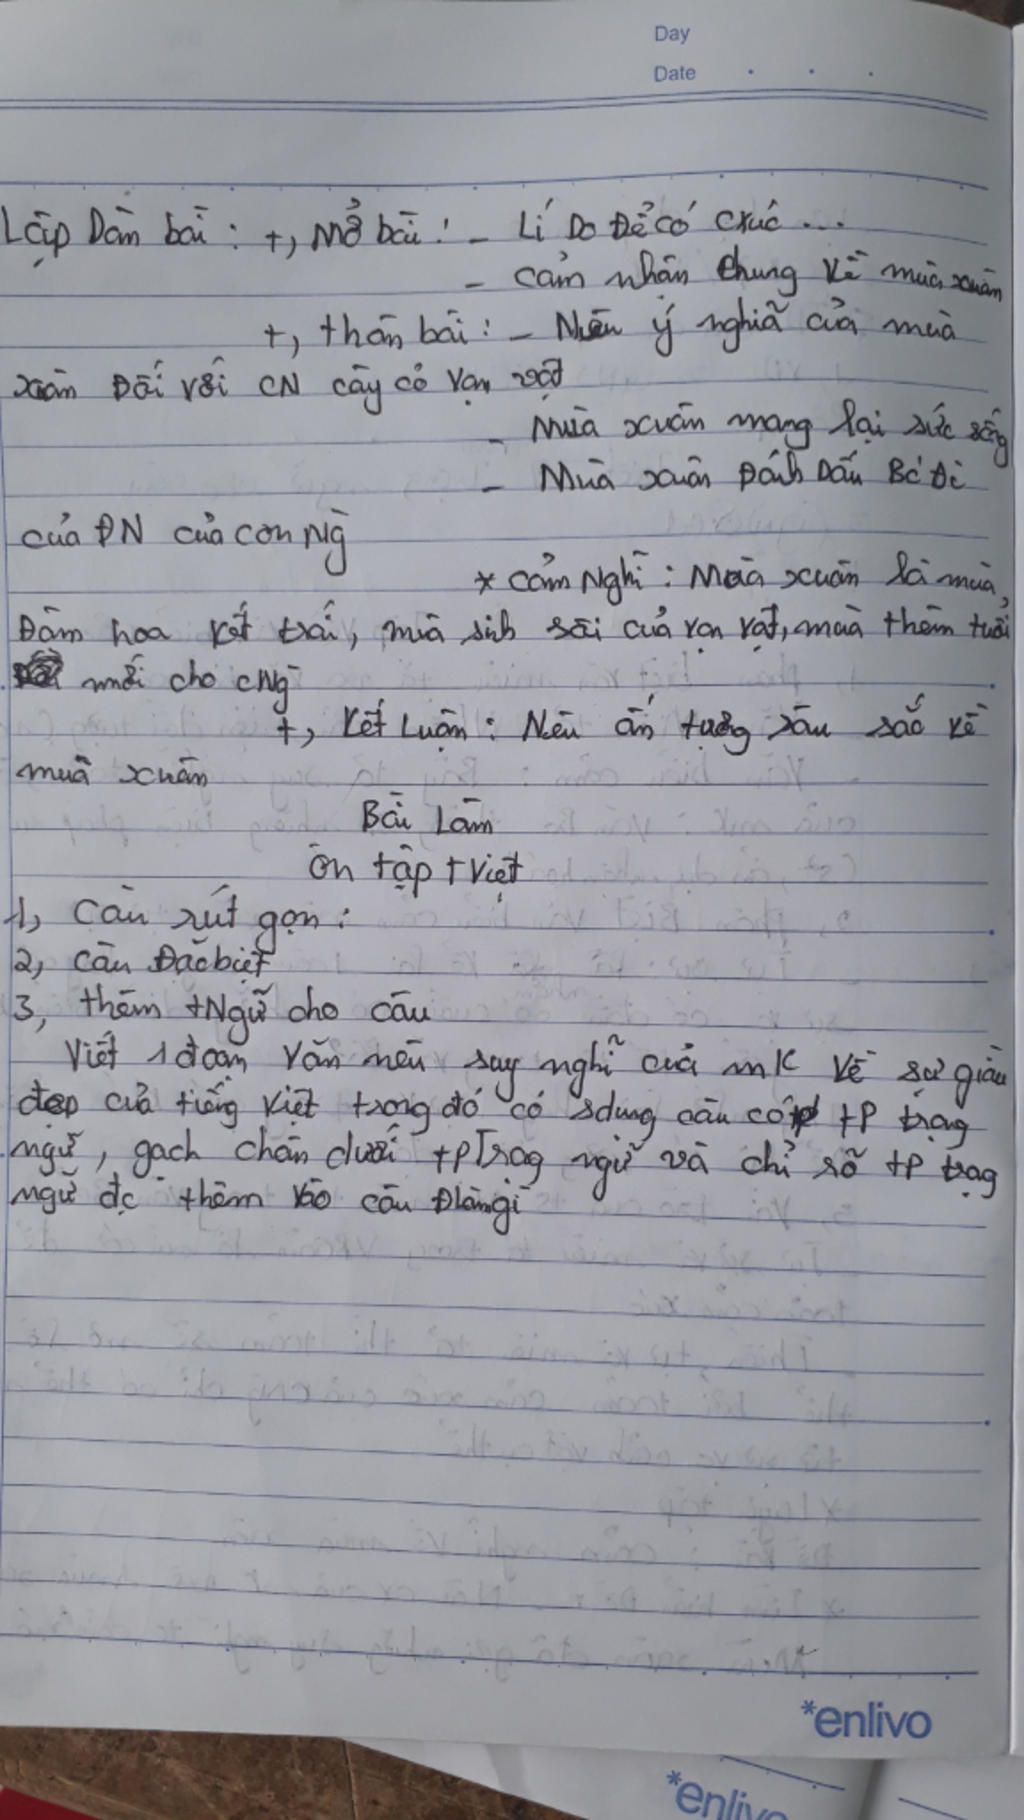 Day
Date
Lập Dàn bài : +, Mở bài : - Lí Do Để có cxúc ...
- cảm nhận chung về mùa xuân
+, thân bài : - Nêu ý nghĩa của mùa
xuân Đối với CN cây cỏ vạn vật
- Mùa xuân mang lại sức sống
- Mùa xuân Đánh Dấu Bc Đi
của ĐN của con Ng̀
* cảm Nghĩ : Mùa xuân là mùa
Đâm hoa kết trái, mùa sinh sôi của vạn vật, mùa thêm tuổi
mới cho cNg̀
+, Kết Luận : Nêu ấn tượng sâu sắc về
mùa xuân
Bài Làm
Ôn tập tviệt
1, Câu rút gọn :
2, Câu Đặc biệt
3, thêm tNgữ cho câu
Viết 1 đoạn văn nêu suy nghĩ của mk về sự giàu
đẹp của tiếng việt trong đó có sdụng câu có tp trạng
ngữ, gạch chân dưới tp Trạng ngữ và chỉ rõ tp trạng
ngữ đc thêm vào câu Đ làm gì
*enlivo
*enlivo